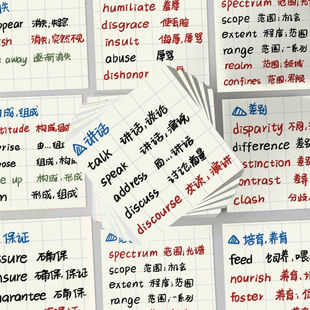 消失
appear 消失,
消失,突然不见
away 逐渐消失
humiliate 羞辱
disgrace 使丢脸
insult 侮辱,辱骂
abuse 辱骂
dishonor
spectrum 范围;光谱
scope 范围;机会
extent 程度;范围
range 范围,一系列
realm 范围,领域
confines 范围,界限
构成,组成
构成,组成
由…组成
构成,
up 构成,形成
形成,组成
讲话
talk 讲话,谈话
speak 讲话,演说
address 向…讲话
discuss 讨论商量
discourse 交谈,演讲
差别
disparity 不同,
difference 差别
distinction 差别
contrast 差异
clash 分歧
保证
确保
确保,保证
确保
spectrum 范围;光谱
scope 范围;机会
extent 程度;范围
range 范围,一系列
培育,养育
feed 饲养,喂
nourish 养育,
foster 养育,